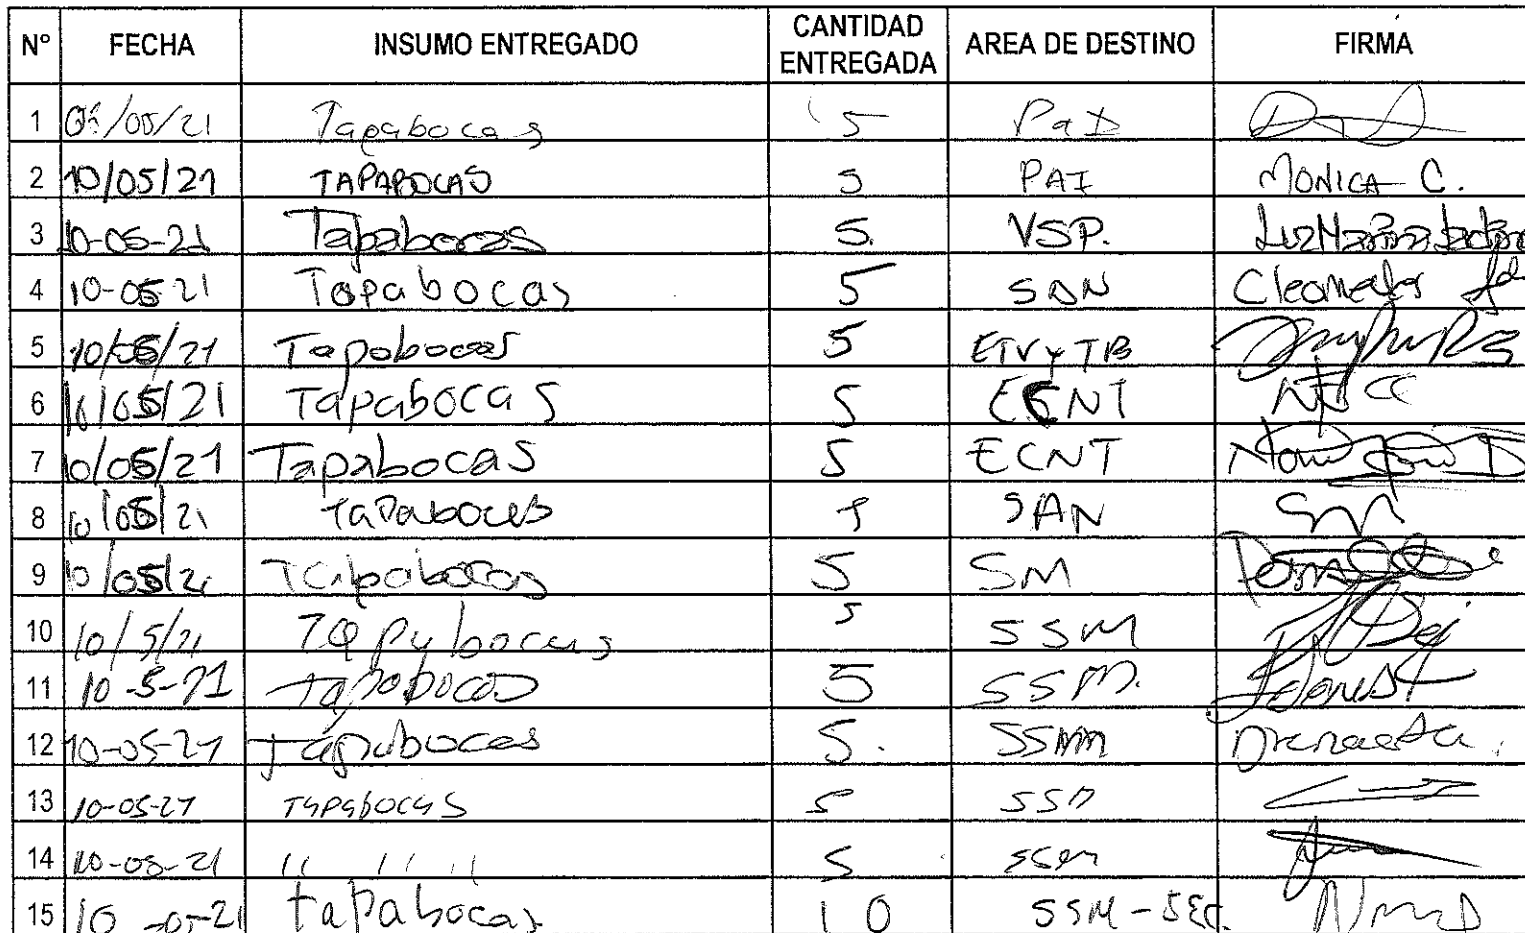 N° FECHA INSUMO ENTREGADO CANTIDAD ENTREGADA AREA DE DESTINO FIRMA
1 /05/21 Tapabocas 5 PaI
2 10/05/21 TAPABOCAS 5 PAI MONICA C.
3 10-05-21 Tapabocas 5. VSP. Luz Marina
4 10-05-21 Tapabocas 5 SAN
5 10/05/21 Tapabocas 5 ETV y TB
6 10/05/21 Tapabocas 5 ECNT
7 10/05/21 Tapabocas 5 ECNT
8 10/05/21 Tapabocas 5 SAN
9 10/05/21 Tapabocas 5 SM
10 10/5/21 Tapabocas 5 SSM
11 10-5-21 Tapabocas 5 SSM.
12 10-05-21 Tapabocas 5. SSM
13 10-05-21 Tapabocas 5
14 10-05-21 " " " 5 SSM
15 10-05-21 tapabocas 10 SSM-SEC.